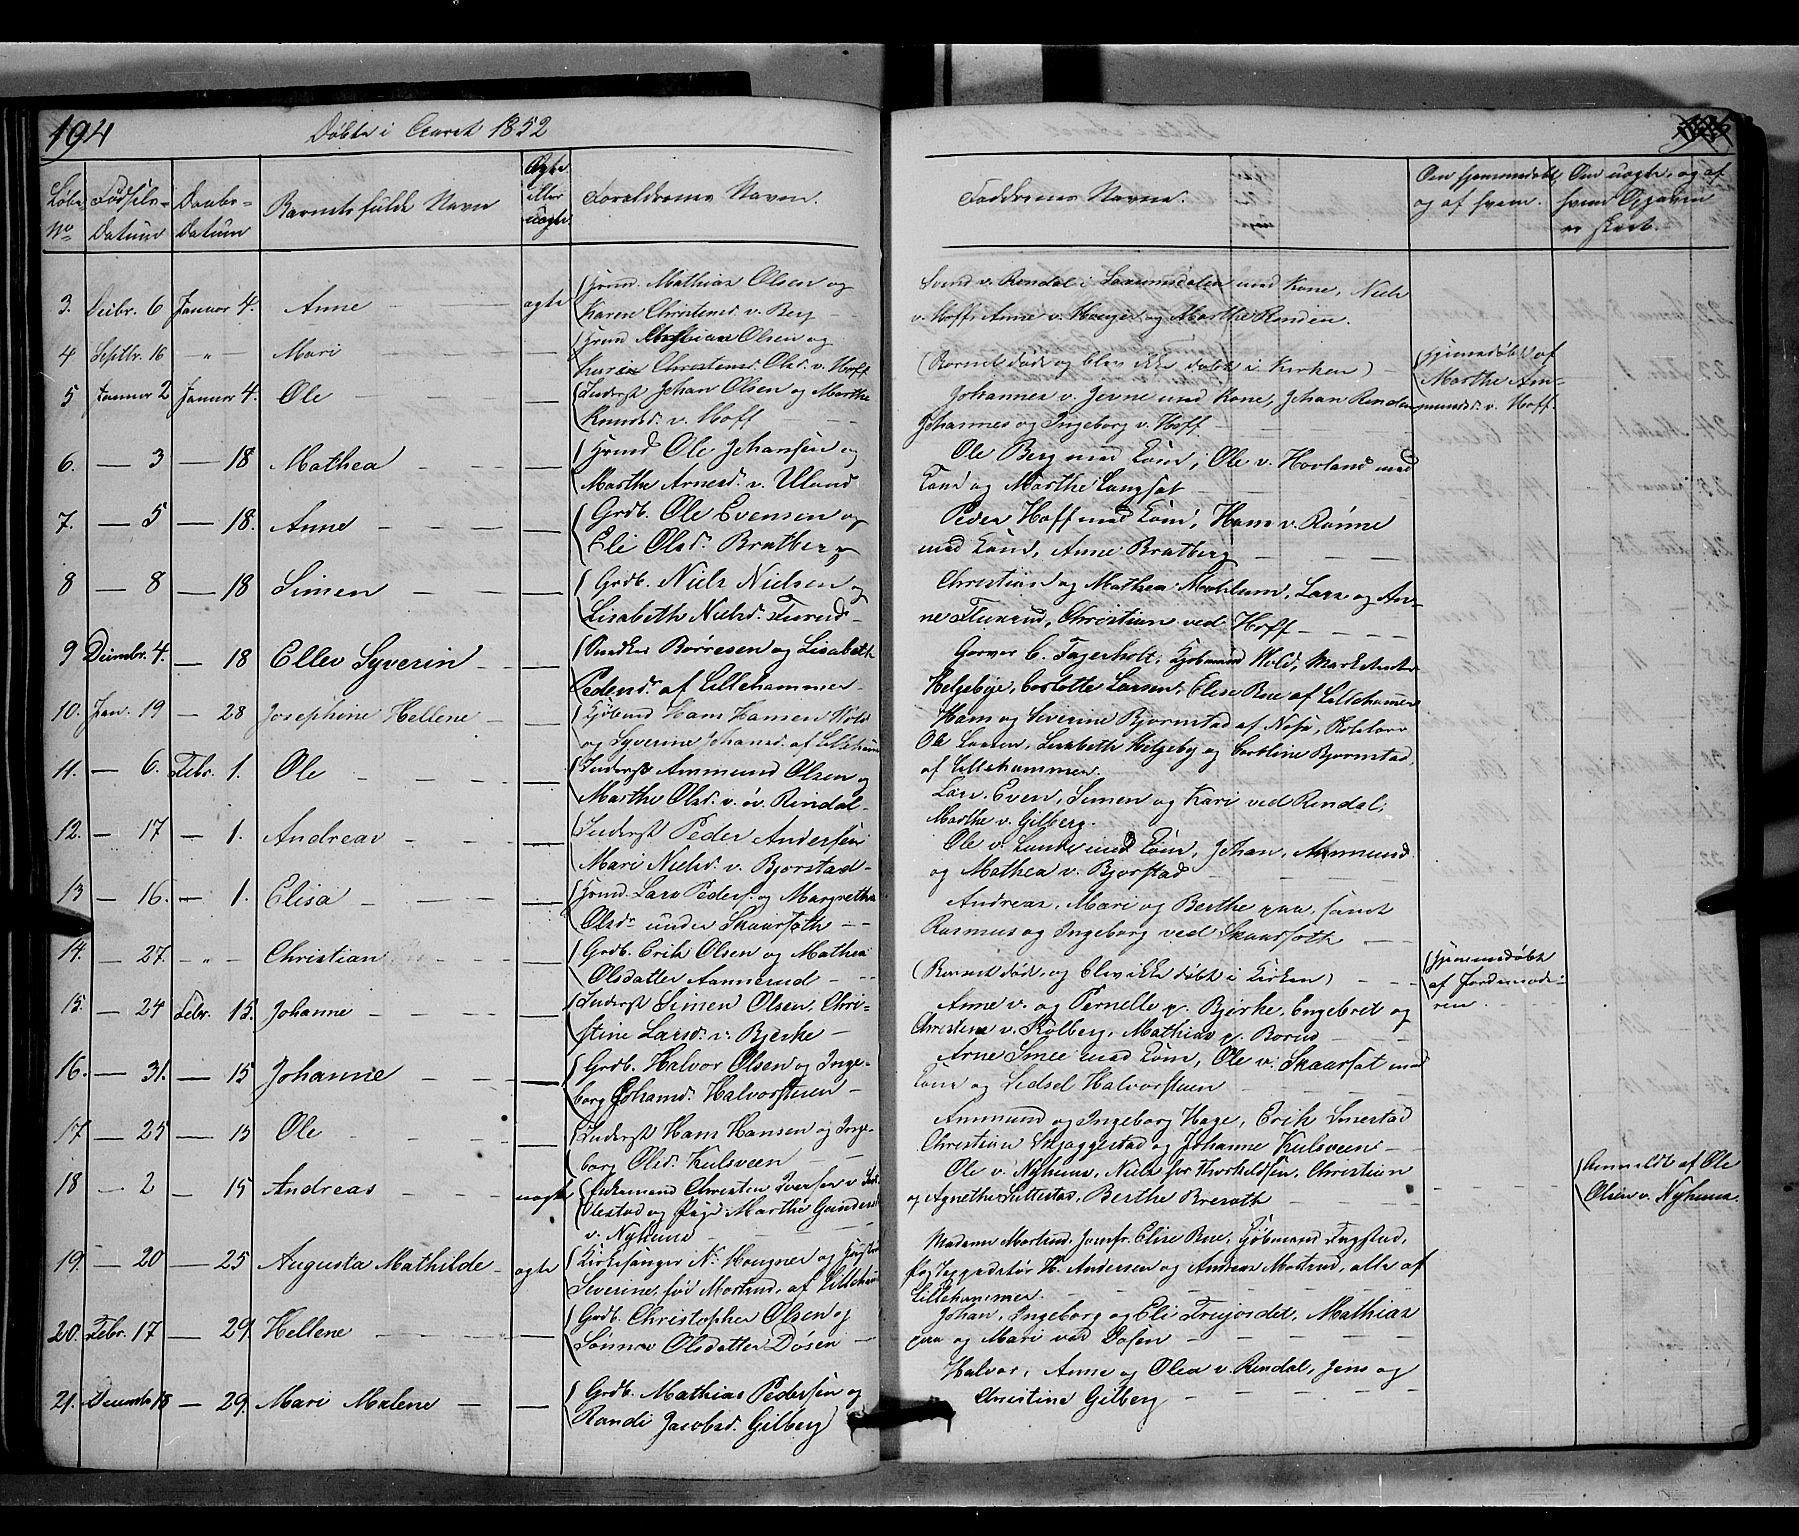 194
Døbte i Aaret 1852
Løbe No
Fødsels-Datum
Daabs-Datum
Barnets fulde Navn
Ægte eller uægte
Forældrenes Navne.
3. Decbr. 6 Januar 4. Anne ægte Huusmd. Mathias Olsen og
Karen Christensd. v. Berg
4 Septbr. 16 - " - Mari Huusmd Olsen og
Christensd. Olsd. v. Hoff
5 Januar 2 Januar 4. Ole Inderst Johan Olsen og Marthe
Knudsd. v. Hoff
6. - 3 - 18 Mathea Huusmd Ole Johansen og
Marthe Arnesd. v. Uland
7. - 5 - 18. Anne Grdb. Ole Evensen og
Eli Olsd. Bratberg
8 - 8 - 18 Simen Grdb. Niels Nielsen og
Lisabeth Nielsd.
9 Decembr. 4. - 18 Ellev Syverin Snedker Børresen og Lisabeth
Pedersdr. af Lillehammer
10. Jan. 19 - 28 Josephine Hellene Kjøbmd Hans Hansen Hold
og Syverine Johansd. af Lillehammer
11. - 6. Febr. 1. Ole Inderst Ammund Olsen og
Marthe Olsd. v. ø. Rindal
12. - 17 - 1. Andreas Inderst Peder Andersen
Mari Nielsd. v. Bjørstad
13 - 16. - 1. Elisa Huusmd. Lars Peders. og Margrethe
Olsdr. under Skaarsæth
14. - 27. - " - Christian Grdb. Erik Olsen og Mathea
Olsdatter Aannerud
15. - 24 Febr. 15. Johanne Inderst Simen Olsen, Chri-
stine Larsd. v. Bjerke
16. - 31. - 15 Johanne Grdb. Halvor Olsen og Inge-
borg Johansd. Halvorsteen
17 - 25 - 15 Ole Inderst Hans Hansen og Inge-
borg Olsd. Kulsveen
18 - 2 - 15 Andreas uægte Christen Iversen v.
og Pige Marthe Gundersd
v. Nyhuus
19. - 20 - 25 Augusta Mathilde ægte Kirkesanger N. Hougner og Hustru
Severine, født Mostud, af Lillehammer
20. Febr. 17 - 29. Hellene Grdb. Christopher Olsen og
Sønnov Olsdatter Døsen
21. Decembr 18 - 29. Mari Malene Grdb. Mathias Pedersen og
Randi Jacobsd. Gilberg
Faddrenes Navne.
Om hjemmedøbt, og af hvem.
Om uægte, og af hvem Opgaven er skeet.
Svend v. Rendal i Saxumsdalen med Kone, Niels
v. Hoff, Anne v. Hauge og Marthe Henden.
(Barnet døde og blev ikke døbt i Kirken)
Hjemmedøbt af
Marthe Am-
mundsd. v. Hoff.
Johannes v. Jevne med Kone, Johan Rendal
Johannes og Ingeborg v. Hoff.
Ole Berg med Kone, Ole v. Hovland med
Kone og Marthe Langsæt
Peder Hoff med Kone, Hans v. Rønne
med Kone, Anne Bratberg
Christian og Mathea Mæhlum, Lars og An-
ne Fluxrud, Christian ved Hoff
Garver C. Fagerholt, Kjøbmand Hold,
Helgebye, Carlotte Larsen, Elise Bue af Lillehammer
Hans og Severine Bjørnstad af Næs,
Ole Larsen, Lisabeth Helgeby og Caroline Bjørnstad
af Lillehammer.
Lars, Even, Simen og Kari ved Rendal,
Marthe v. Gilberg.
Ole v. Lunde med Kone, Johan, Ammund
og Mathea v. Bjørstad
Andreas, Mari og Berthe paa, samt
Rasmus og Ingeborg ved Skaarsæth
(Barnet død, og blev ikke døbt i Kirken)
Hjemmedøbt
af Jordemode-
ren.
Anne v. og Pernelle p. Bjerke, Engebret og
Christine v. Kolberg, Mathias p. Borud
Arne Smee med Kone, Ole v. Skaarsæt med
Kone og Sidsel Halvorsteen
Ammund og Ingeborg Hage, Erik Smestad
Christian Skjaggestad og Johanne Kulsveen
Ole v. Nyhuus, Niels Thorkeldsen, Christian
og Agnethe Suttestad, Berthe Breiseth
Anmeldt af Ole
Olsen v. Nyhuus.
Madame Mostud, Jomfr. Elise Bue, Kjøbmand Fagstad,
H. Andersen og Andreas Mostrud, alle af
Lillehammer.
Johan, Ingeborg og Eli Freijordet, Mathias
paa og Mari ved Døsen
Halvor, Anne og Olea v. Rendal, Jens og
Christine Gilberg